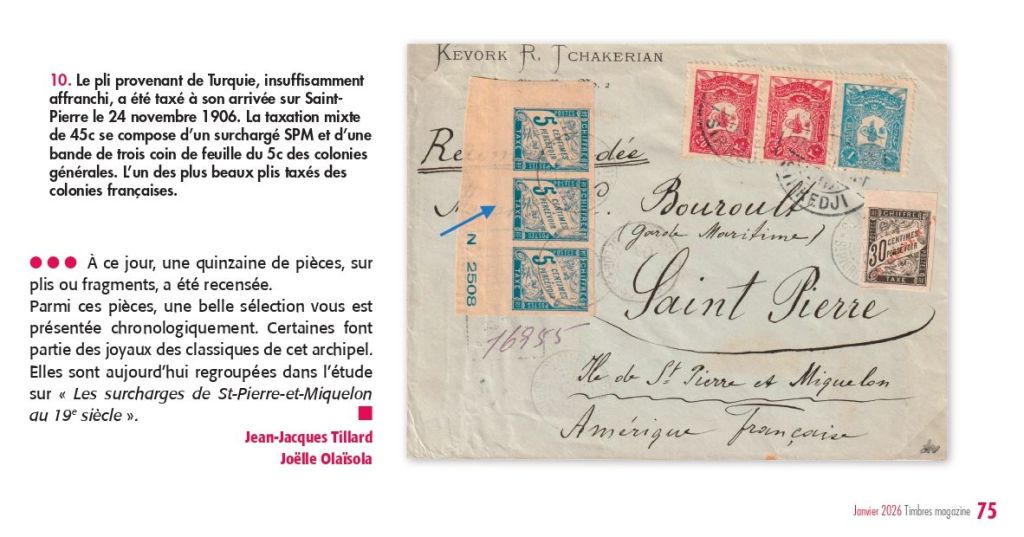 10. Le pli provenant de Turquie, insuffisamment
affranchi, a été taxé à son arrivée sur Saint-
Pierre le 24 novembre 1906. La taxation mixte
de 45c se compose d'un surchargé SPM et d'une
bande de trois coin de feuille du 5c des colonies
générales. L'un des plus beaux plis taxés des
colonies françaises.
●●● À ce jour, une quinzaine de pièces, sur
plis ou fragments, a été recensée.
Parmi ces pièces, une belle sélection vous est
présentée chronologiquement. Certaines font
partie des joyaux des classiques de cet archipel.
Elles sont aujourd'hui regroupées dans l'étude
sur « Les surcharges de St-Pierre-et-Miquelon
au 19e siècle ».
Jean-Jacques Tillard
Joëlle Olaïsola
KÉVORK R. TCHAKERIAN
CHIFFRE
POSTES
5
CENTIMES
À PERCEVOIR
TAXE
CHIFFRE
POSTES
5
CENTIMES
À PERCEVOIR
TAXE
CHIFFRE
POSTES
5
CENTIMES
À PERCEVOIR
TAXE
N 2508
16955
Bouroult
(Garde Maritime)
CHIFFRE
POSTES
30 CENTIMES
À PERCEVOIR
TAXE
Saint Pierre
Ile de St Pierre et Miquelon
Amérique Française
Janvier 2026 Timbres magazine 75